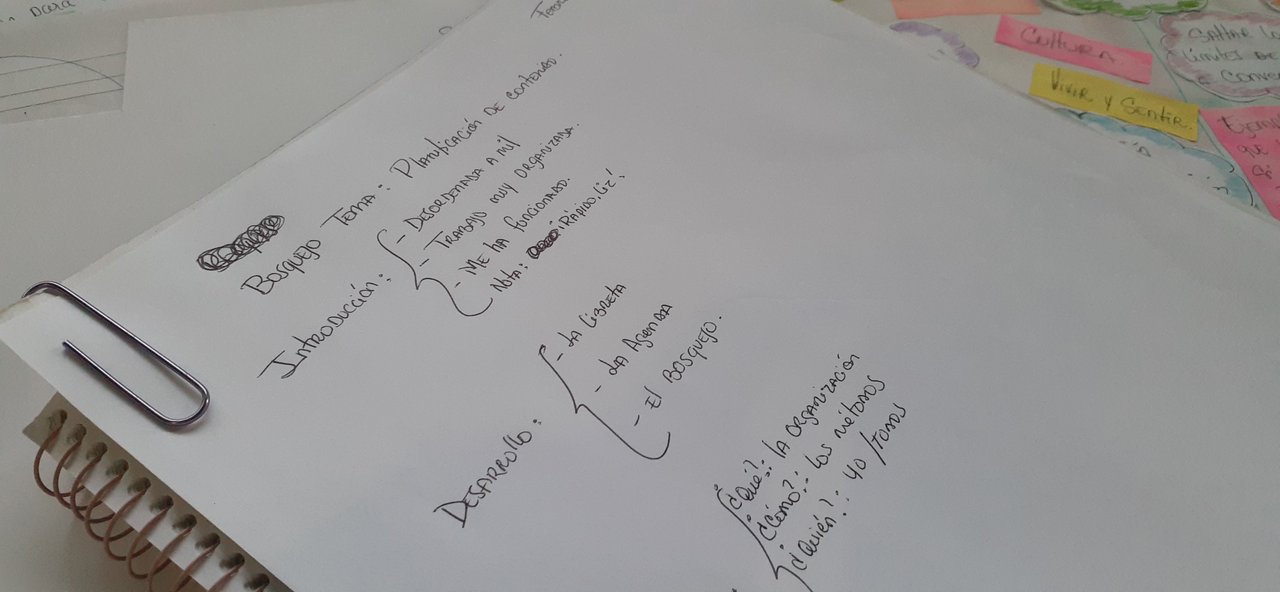 Bosquejo Tema: Planificación de contenido.
Introducción:
- Desordenada a mil
- Trabajo muy organizada.
- Me ha funcionado.
Nota: ¡Rápido, Liz!
Desarrollo:
- La libreta
- La Agenda
- El Bosquejo.
¿Qué?: La organización
¿Cómo?: Los métodos
¿Quién?: Yo / Todos
Cultura
Vivir y Sentir.
Saltar
límites de
que